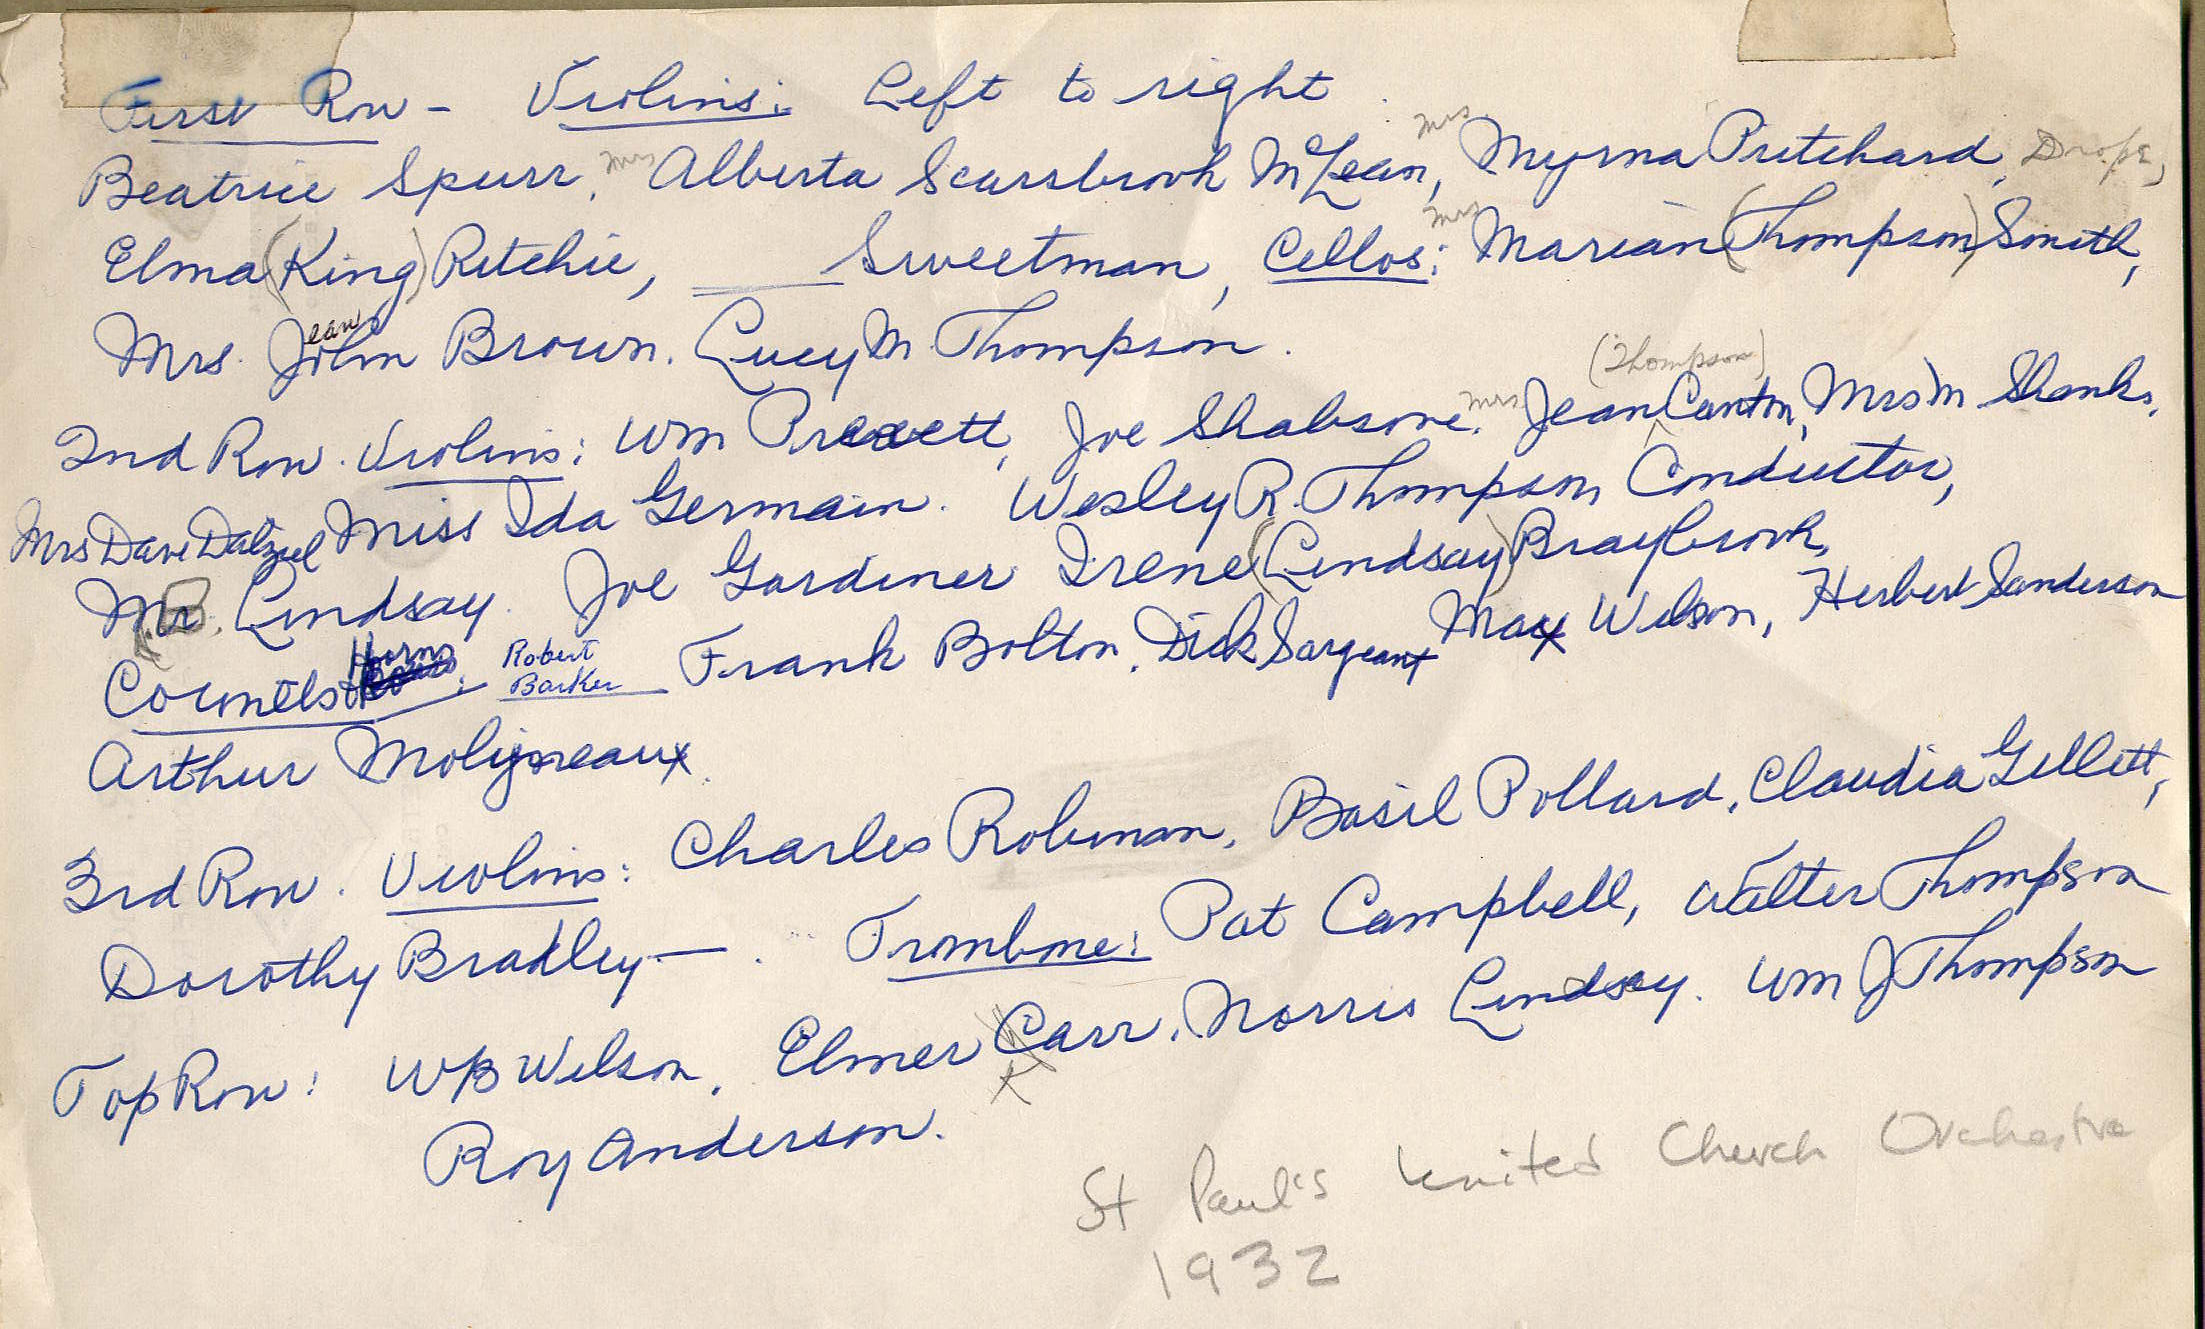 First Row - Violins: Left to right
Beatrice Spurr, Mrs Alberta Scarsbrook McLean, Mrs Myrna Pritchard, Drope,
Elma (King) Ritchie, ___ Sweetman, Cellos: Mrs Marian (Thompson) Smith,
Mrs. John Jean Brown. Lucy M. Thompson.
2nd Row. Violins: Wm Prewett, Joe Shabsove. Mrs. Jean (Thompson) Canton, Mrs M. Shanks.
Mrs Dave Dalziel Miss Ida Germain. Wesley R. Thompson Conductor,
Mr. Lindsay. Joe Gardiner Irene (Lindsay) Braybrook,
Cornets & Horns: Robert Barker Frank Bolton. Dick Sargeant Max Wilson, Herbert Sanderson
Arthur Molyneaux.
3rd Row. Violins: Charles Robinson, Basil Pollard, Claudia Gillett,
Dorothy Bradley —. Trombone: Pat Campbell, Walter Thompson
Top Row: WB Wilson, Elmer Carr. Norris Lindsay. Wm J Thompson
K
Roy Anderson.
St Paul's United Church Orchestra
1932